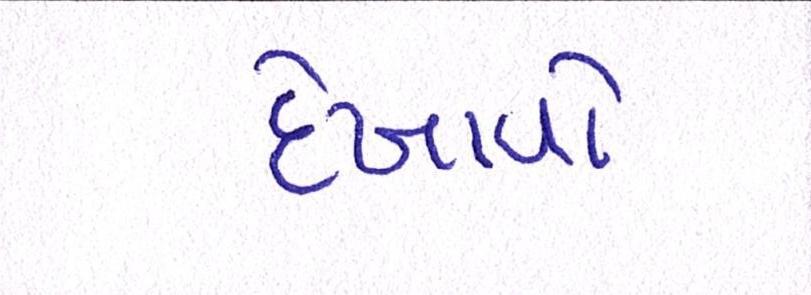 દેખાવો